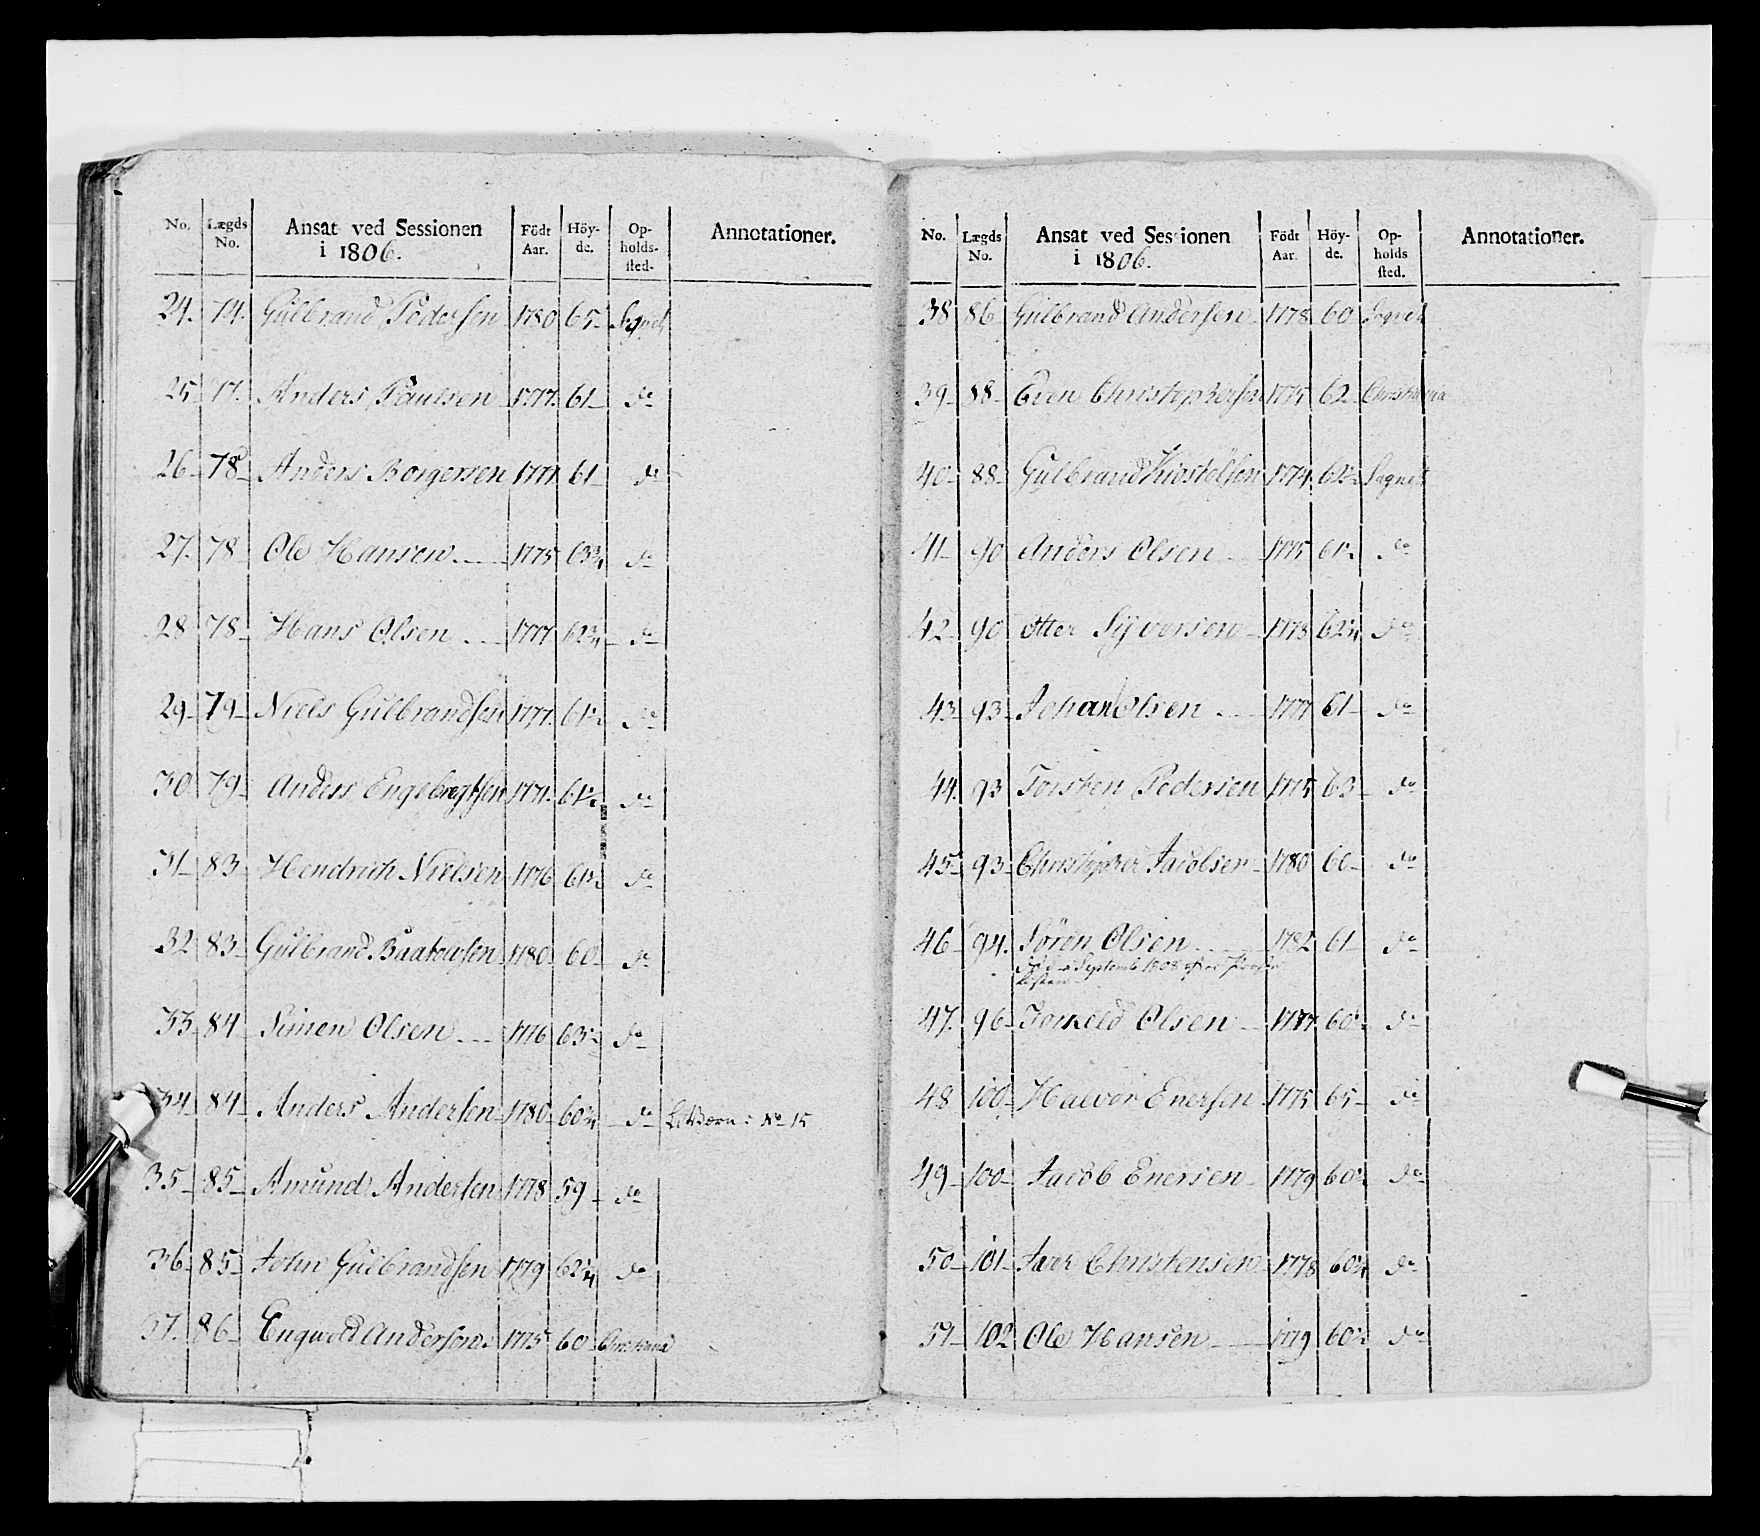 No. Lægds No. Ansat ved Sessionen i 1806. Födt Aar. Höy-de. Op-holds-sted. Annotationer.
24. 74. Gulbrand Pedersen 1780 65 Sognet
25 77. Anders Paulsen 1777. 61 do
26 78 Anders Borgersen 1777 61 do
27. 78 Ole Hansen 1775 63 3/4 do
28 78 Hans Olsen 1777 62 3/4 do
29 79 Niels Gulbrandsen 1777. 61 1/2 do
30 79 Anders Engebregtsen 1771. 61 1/2 do
31 83 Hendrich Nielsen 1776 61 1/2 do
32 83 Gulbrand 1780 60 do
33 84 Simen Olsen 1776 63 1/2 do
34 84 Anders Andersen 1780 60 3/4 do No 15
35 85 Amund Andersen 1778 59 do
36 85 John Gulbrandsen 1779 62 1/4 do
37. 86 Engwold Andersen 1775 60 Christiania
No. Lægds No. Ansat ved Sessionen i 1806. Födt Aar. Höy-de. Op-holds sted. Annotationer.
38 86 Gulbrand Andersen 1778 60 Sognet
39 88 Even Christophersen 1775 62 Christiania
40 88 Gulbrand 1774 62 1/2 Sognet
41 90 Anders Olsen 1775 61 1/2 do
42 90 Otter Syversen 1778 62 1/4 do
43 93 Johan Olsen 1777 61 do
44. 93 Torsten Pedersen 1775 63 do
45 93 Christopher Jacobsen 1780 60 do
46 94. Sören Olsen 1782 61 do
Septemb 1808 efter
47. 96 Torkeld Olsen 1777 60 1/2 do
48 100 Halvor Enersen 1775 65 do
49 100 Jacob Enersen 1779 60 1/2 do
50 101 Iver Christensen 1778 60 1/4 do
51 102 Ole Hansen 1779 60 1/2 do